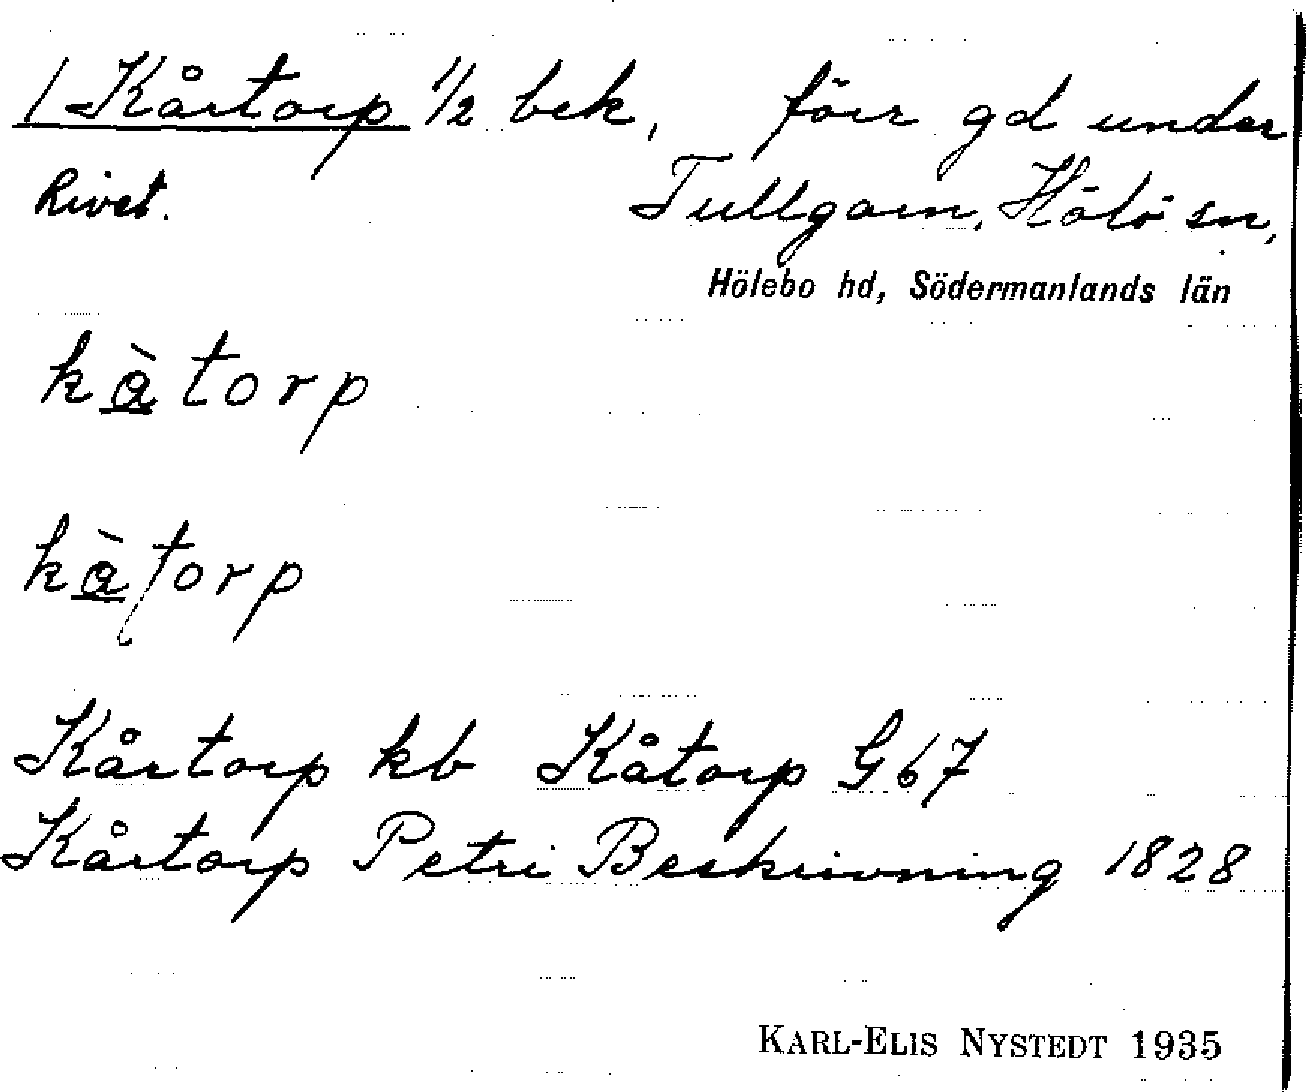 / Kårtorp 1/2 bek, förr gd under
Rivet. Tullgarn, Hölö sn,
Hölebo hd, Södermanlands län
kàtorp
kàtorp
Kårtorp kb Kåtorp G 67
Kårtorp Petri Beskrivning 1828
KARL-ELIS NYSTEDT 1935